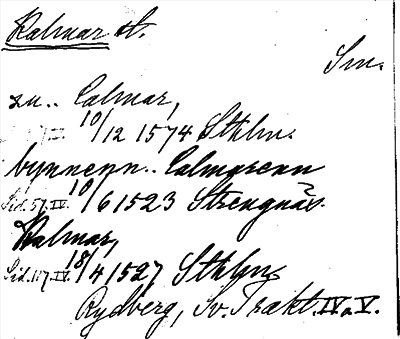 Kalmar st.
Sm.
zu.. Calmar,
10/12 1574 Sthlm.
bynnenn.. Calmarenn
Sid. 51. IV. 10/6 1523 Strengnäs.
Kalmar,
Sid. 117. IV. 18/4 1527 Sthlm
Rydberg, Sv. Trakt. IV o. V.